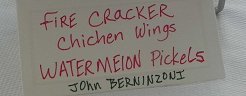 FIRE CRACKER
Chichen Wings
WATERMElON PickelS
JOhn BERNINZONI